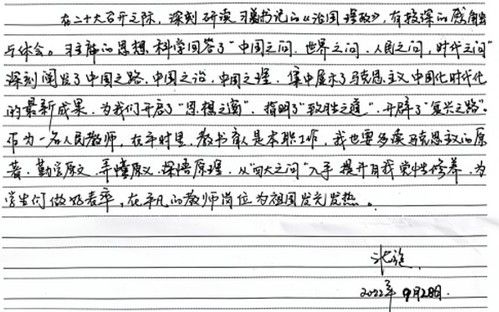 在二十大召开之际，深刻研读习总书记的《治国理政》，有较深的感触
与体会。习主席的思想科学回答了"中国之问、世界之问、人民之问、时代之问"
深刻阐发了中国之路、中国之治、中国之理，集中展示了马克思主义中国化时代化
的最新成果，为我们开启了"思想之窗"，指明了"致胜之道"，开辟了"复兴之路"。
作为一名人民教师，在平时里，教书育人是本职工作，我也要多读马克思主义的原
著、勤学原文、弄懂原义、探悟原理，从"四大之问"入手提升自我党性修养，为
学生们做好表率，在平凡的教师岗位为祖国发光发热。
2022年9月28日